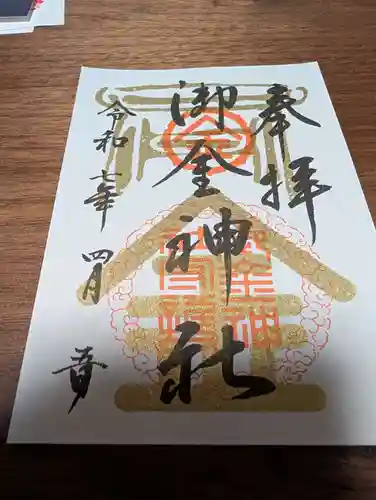 奉拝
御金神社
令和七年四月吉日